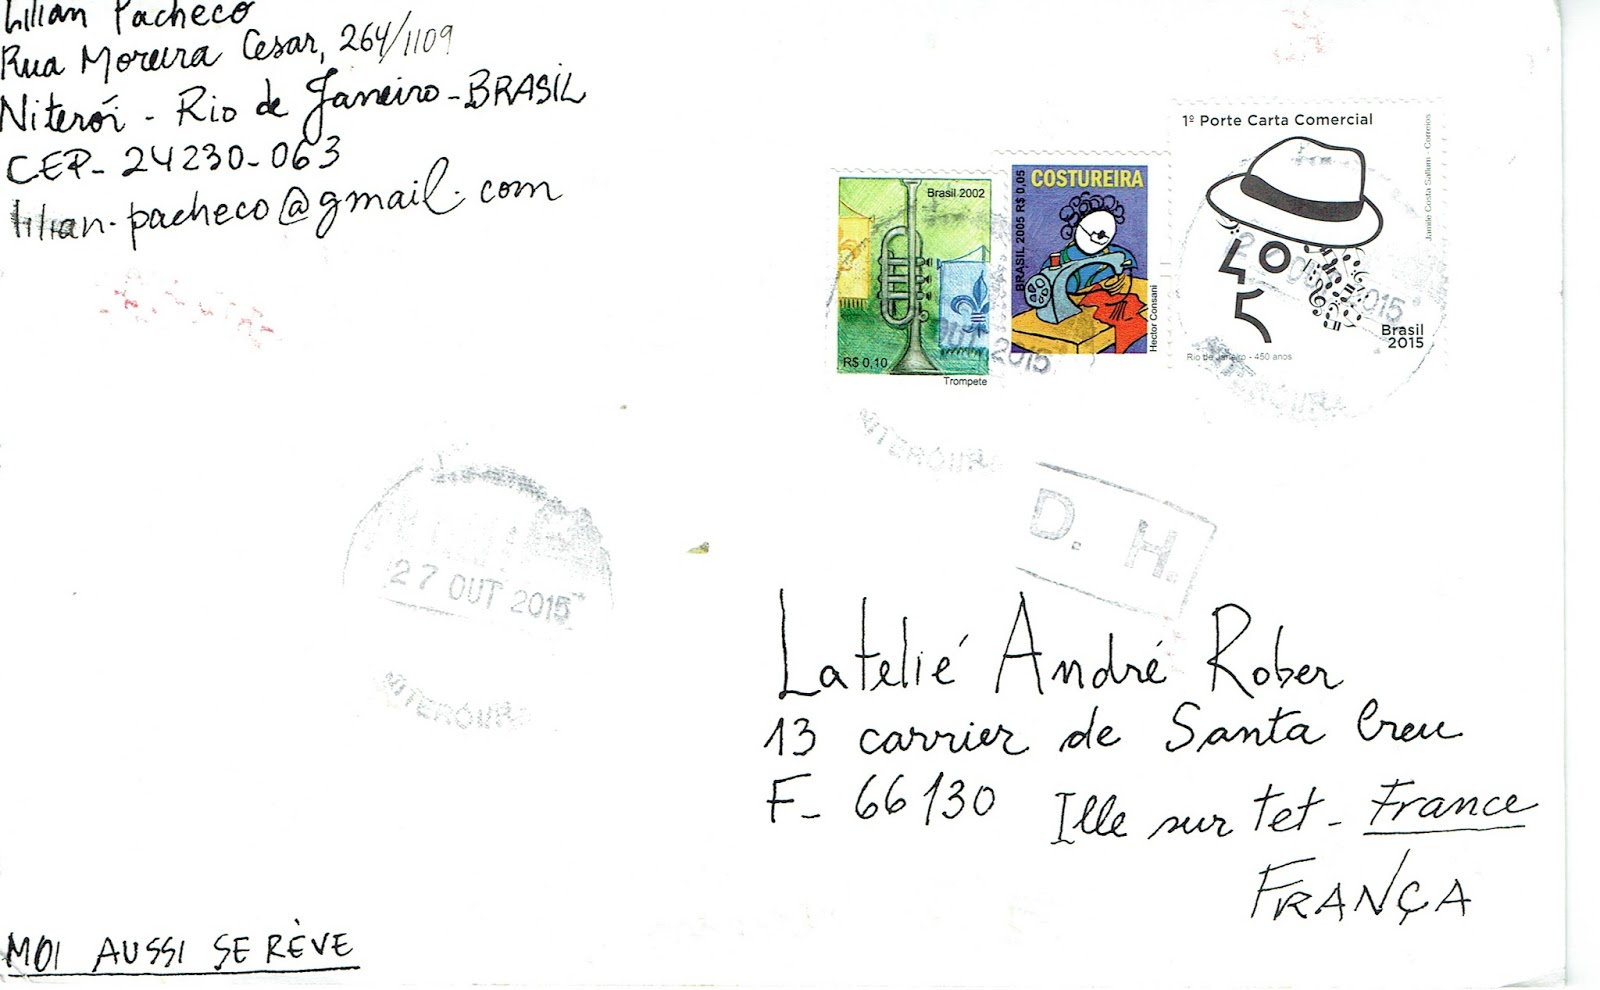 Lilian Pacheco
Rua Moreira Cesar, 264/1109
Niterói - Rio de Janeiro - BRASIL
CEP - 24230-063
lilian.pacheco@gmail.com
Brasil 2002
R$ 0,10
Trompete
COSTUREIRA
BRASIL 2005 R$ 0,05
Hector Consani
1º Porte Carta Comercial
Jamile Costa Sallum - Correios
450
Brasil
2015
Rio de Janeiro - 450 anos
2015
OUT 2015
NITERÓI/RJ
NITERÓI/RJ
D. H.
27 OUT 2015
NITERÓI/RJ
Latelié André Rober
13 carrier de Santa Creu
F- 66130 Ille sur tet - France
FRANÇA
MOI AUSSI SE RÈVE